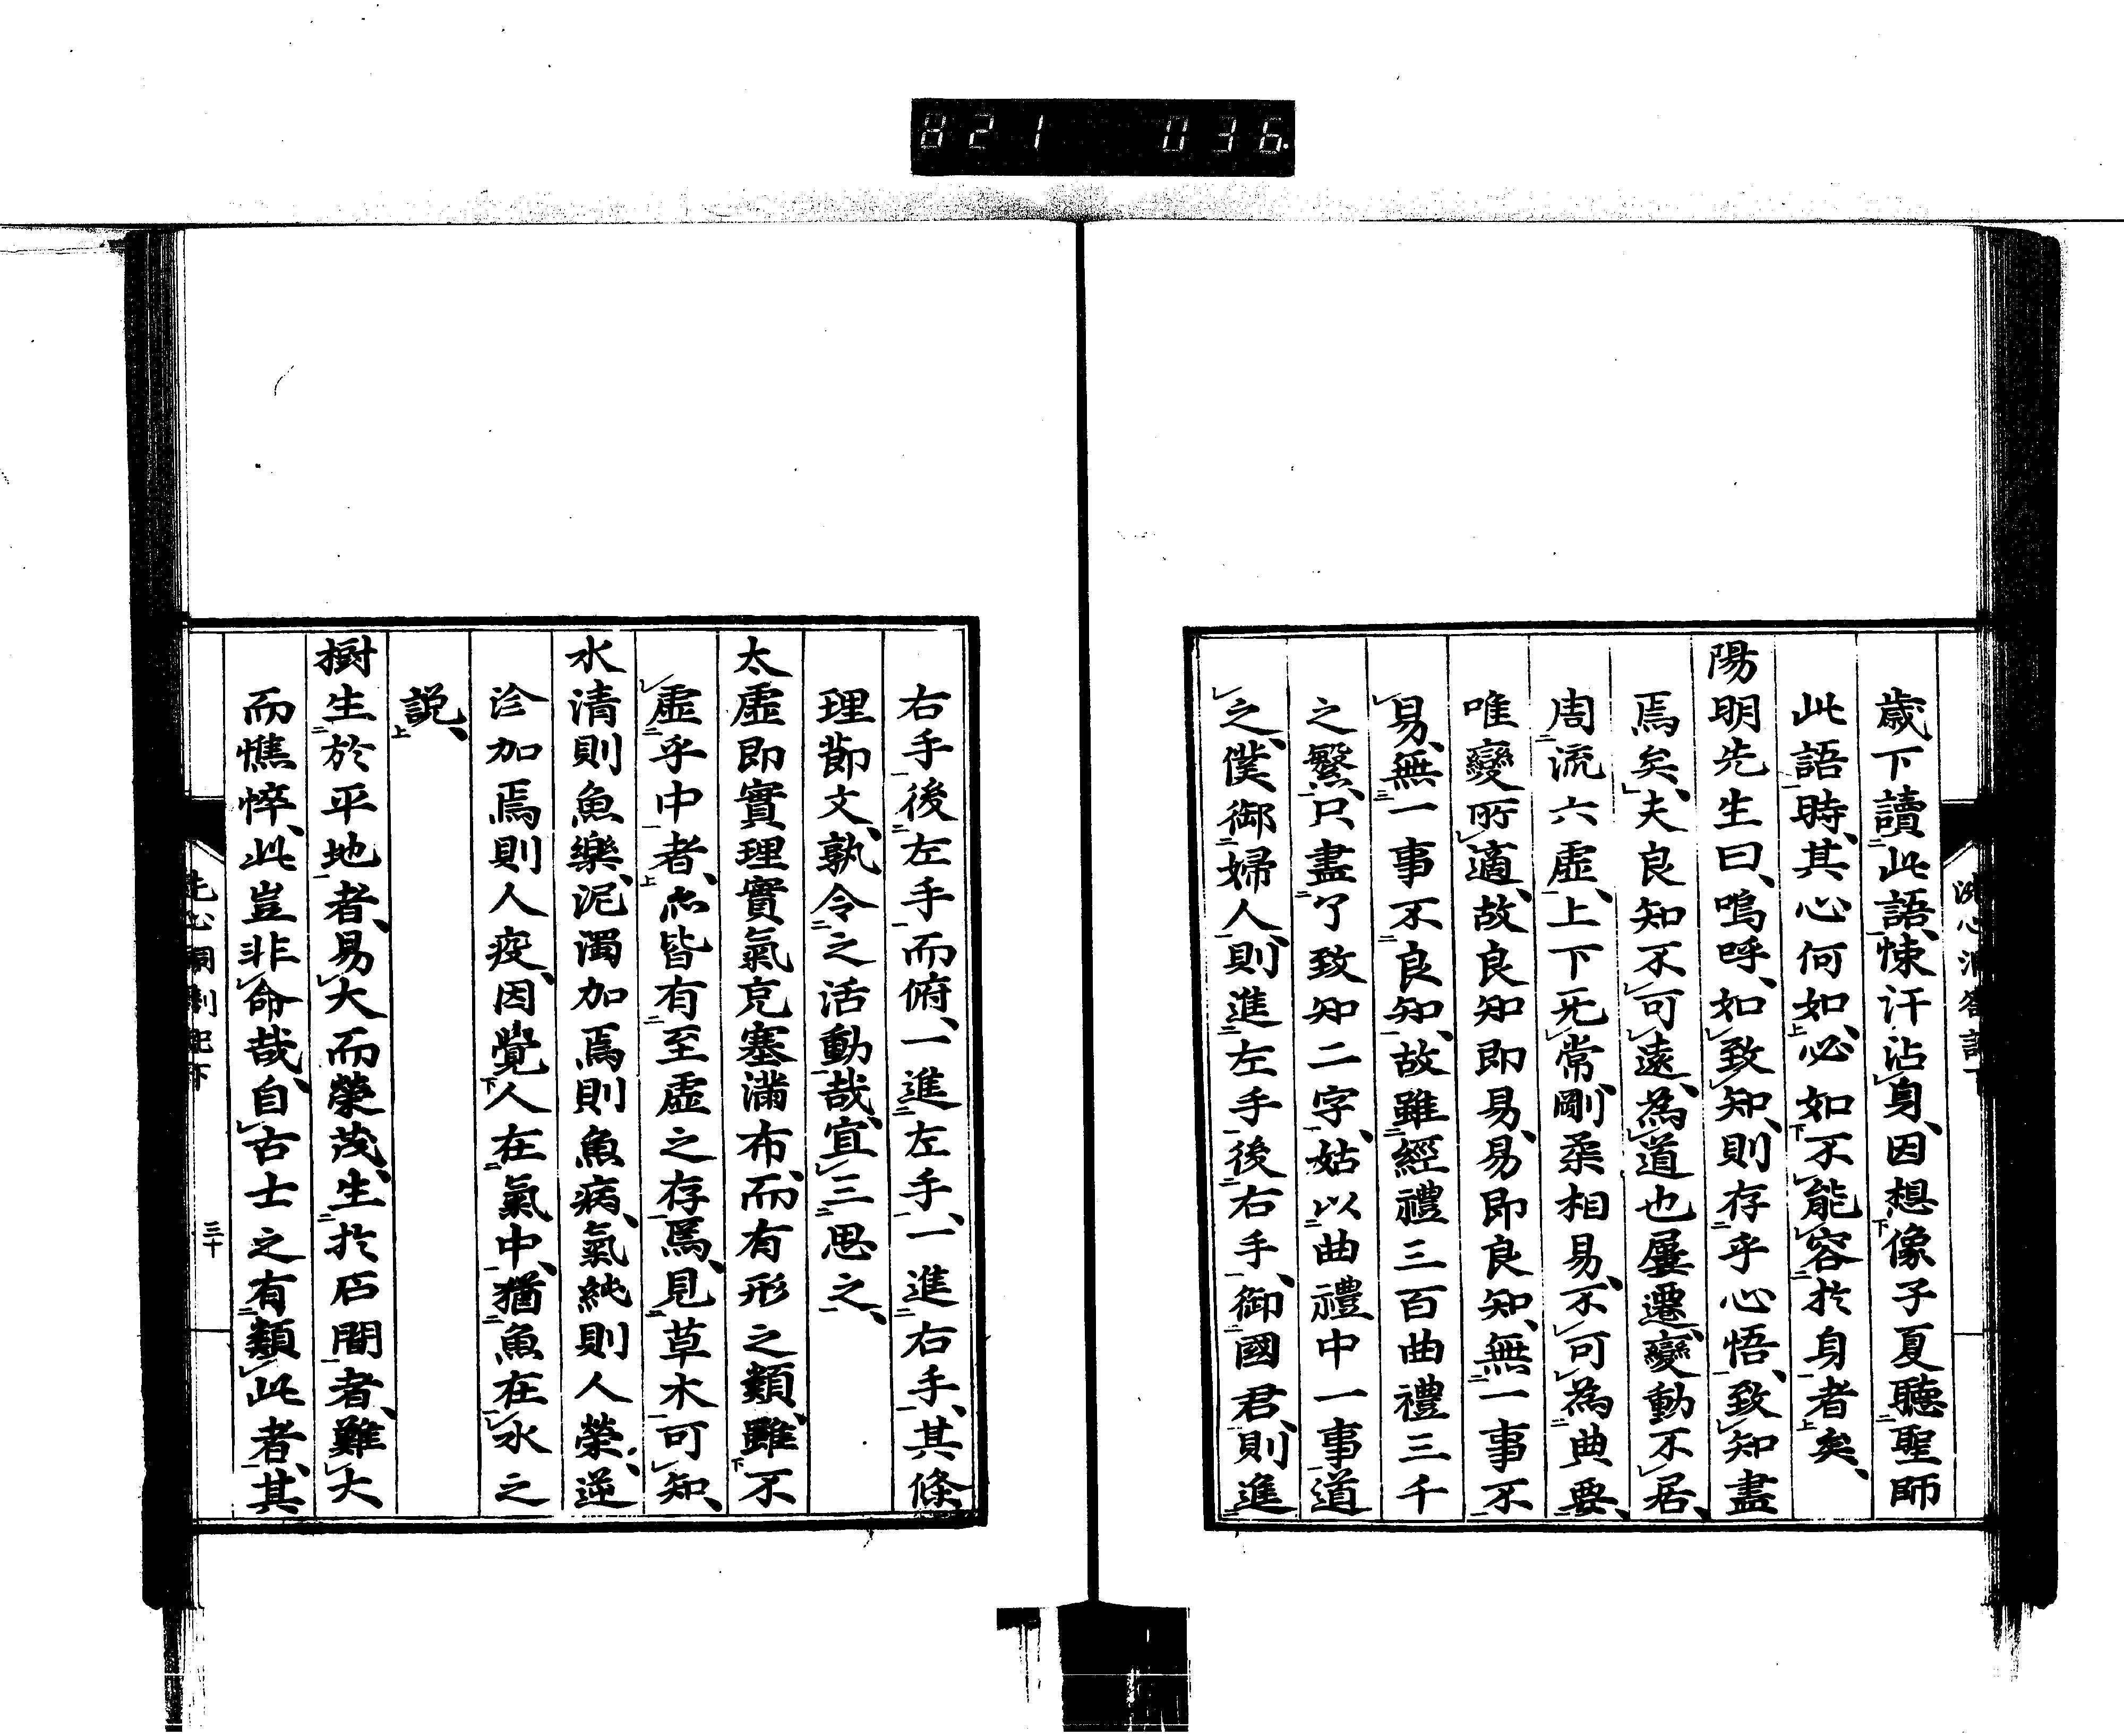 821 036
歳下讀此語、悚汗沾身、因想像子夏聽聖師
此語時、其心何如、必如不能容於身者矣、
陽明先生曰、嗚呼、如致知、則存乎心悟、致知盡
焉矣、夫良知不可遠、為道也屢遷、變動不居、
周流六虛、上下无常、剛柔相易、不可為典要、
唯變所適、故良知即易、易即良知、無一事不
易、無一事不良知、故雖經禮三百曲禮三千
之繁、只盡了致知二字、姑以曲禮中一事道
之、僕御婦人、則進左手、後右手、御國君、則進
右手後左手而俯、一進左手、一進右手、其條
理節文、孰令之活動哉、宜三思之、
太虛即實理實氣充塞滿布、而有形之類、雖不
虛乎中者、亦皆有至虛之存焉、見草木可知、
水清則魚樂、泥濁加焉則魚病、氣純則人榮、逆
沴加焉則人疫、因覺人在氣中、猶魚在水之
説、
樹生於平地者、易大而榮茂、生於石間者、難大
而憔悴、此豈非命哉、自古士之有類此者、其
洗心洞劄記下
三十